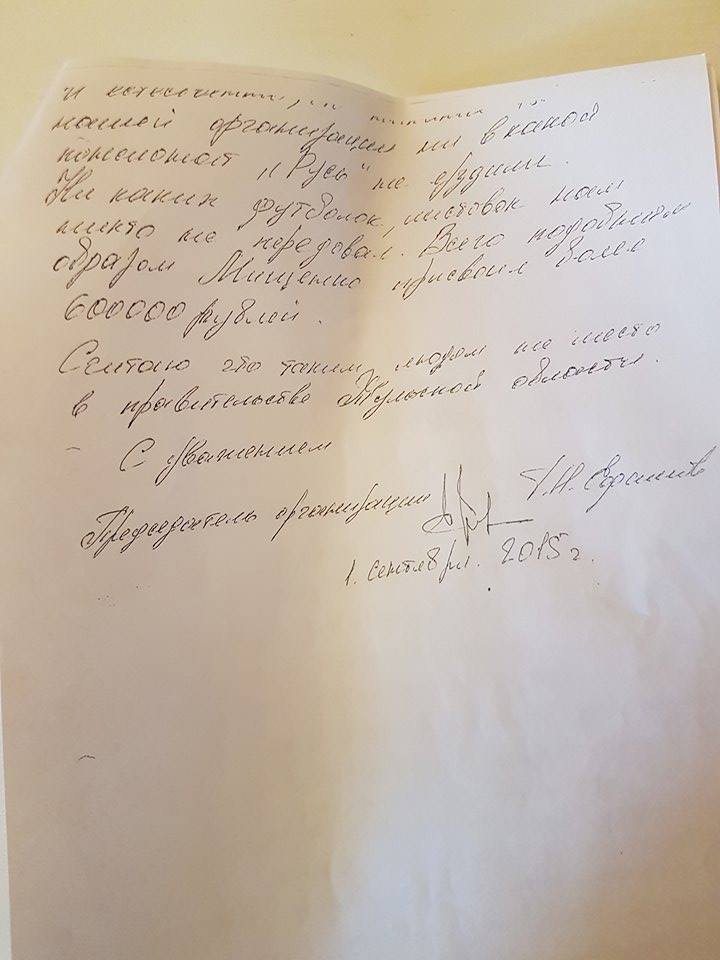 и
нашей организации ни в какой
пансионат "Русь" не ездили.
Ни каких футболок, листовок нам
никто не передавал. Всего подобным
образом Мищенко присвоил более
600000 рублей.
Считаю что таким людям не место
в правительстве Тульской области.
С уважением
Председатель организации
1. сентября. 2015 г.